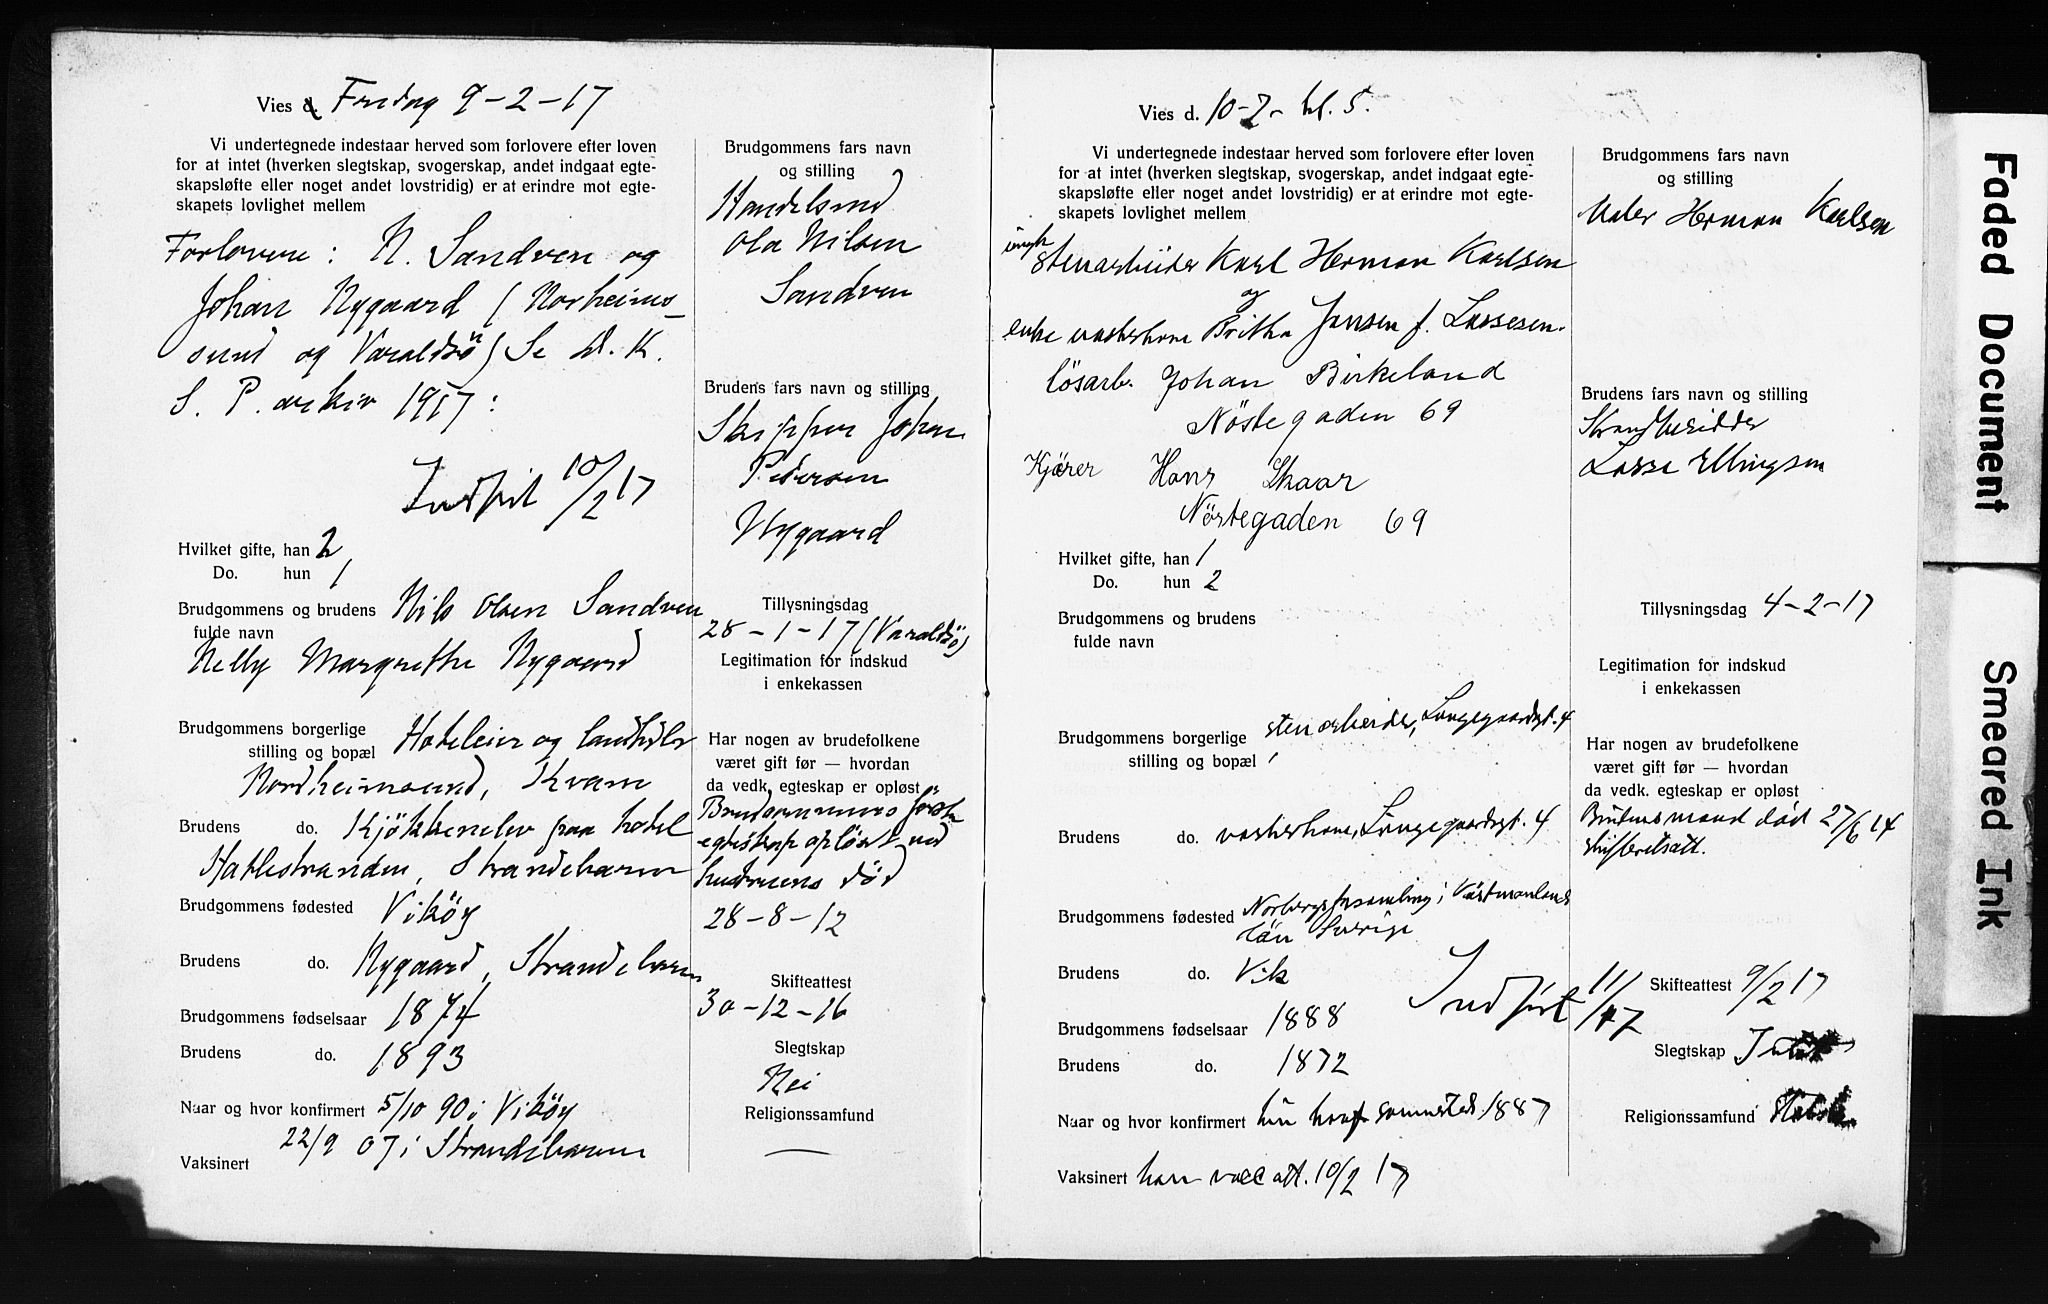 Vies d. Fredag 9-2-17
Vi undertegnede indestaar herved som forlovere efter loven
for at intet (hverken slegtskap, svogerskap, andet indgaat egte-
skapsløfte eller noget andet lovstridig) er at erindre mot egte-
skapets lovlighet mellem
Forlovere: N. Sandven og
Johan Nygaard (Norheims-
sund og Varaldsö) Se D. K.
S. P. arkiv 1917:
Indført 10/2 17
Hvilket gifte, han 2
Do. hun 1
Brudgommens og brudens Nils Olsen Sandven
fulde navn
Nelly Margrethe Nygaard
Brudgommens borgerlige Hoteleier og landhdlr
stilling og bopæl
Nordheimsund, Kvam
Brudens do. Kjökkenelev paa hotel
Hatlestranden, Strandebarm
Brudgommens fødested Viköy
Brudens do. Nygaard, Strandebarm
Brudgommens fødselsaar 1874
Brudens do. 1893
Naar og hvor konfirmert 5/10 90 i Viköy
22/9 07 i Strandebarm
Vaksinert
Brudgommens fars navn
og stilling
Handelsmd
Ola Nilsen
Sandven
Brudens fars navn og stilling
Skipper Johan
Pedersen
Nygaard
Tillysningsdag
28-1-17 (Varaldsö)
Legitimation for indskud
i enkekassen
Har nogen av brudefolkene
været gift før — hvordan
da vedk. egteskap er opløst
Brudgommens förste
egteskap oplöst ved
hustruens död
28-8-12
Skifteattest
30-12-16
Slegtskap
Nei
Religionssamfund
—
Vies d. 10-2- kl. 5.
Vi undertegnede indestaar herved som forlovere efter loven
for at intet (hverken slegtskap, svogerskap, andet indgaat egte-
skapsløfte eller noget andet lovstridig) er at erindre mot egte-
skapets lovlighet mellem
ungk stenarbeider Karl Herman Karlsen
og
enke vaskerkone Britha Jansen f. Lassesen.
løsarb. Johan Birkeland
Nöstegaden 69
Kjører Hans Skaar
Nöstegaden 69
Hvilket gifte, han 1
Do. hun 2
Brudgommens og brudens
fulde navn
Brudgommens borgerlige stenarbeider, Lungegaardsgt. 4
stilling og bopæl
Brudens do. vaskerkone, Lungegaardsgt. 4
Brudgommens fødested Norbergs församling i Västmanlands
län Sverige
Brudens do. Vik
Brudgommens fødselsaar 1888
Indført 11/
Brudens do. 1872
Naar og hvor konfirmert hun sammesteds 1887
Vaksinert han vacc att. 10/2 17
Brudgommens fars navn
og stilling
Maler Herman Karlsen
Brudens fars navn og stilling
Strandsidder
Lasse Ellingsen
Tillysningsdag 4-2-17
Legitimation for indskud
i enkekassen
Har nogen av brudefolkene
været gift før — hvordan
da vedk. egteskap er opløst
Brudens mand död 27/6 14
skifteretsatt.
Skifteattest 9/2 17
Slegtskap
Religionssamfund
Faded Document
Smeared Ink